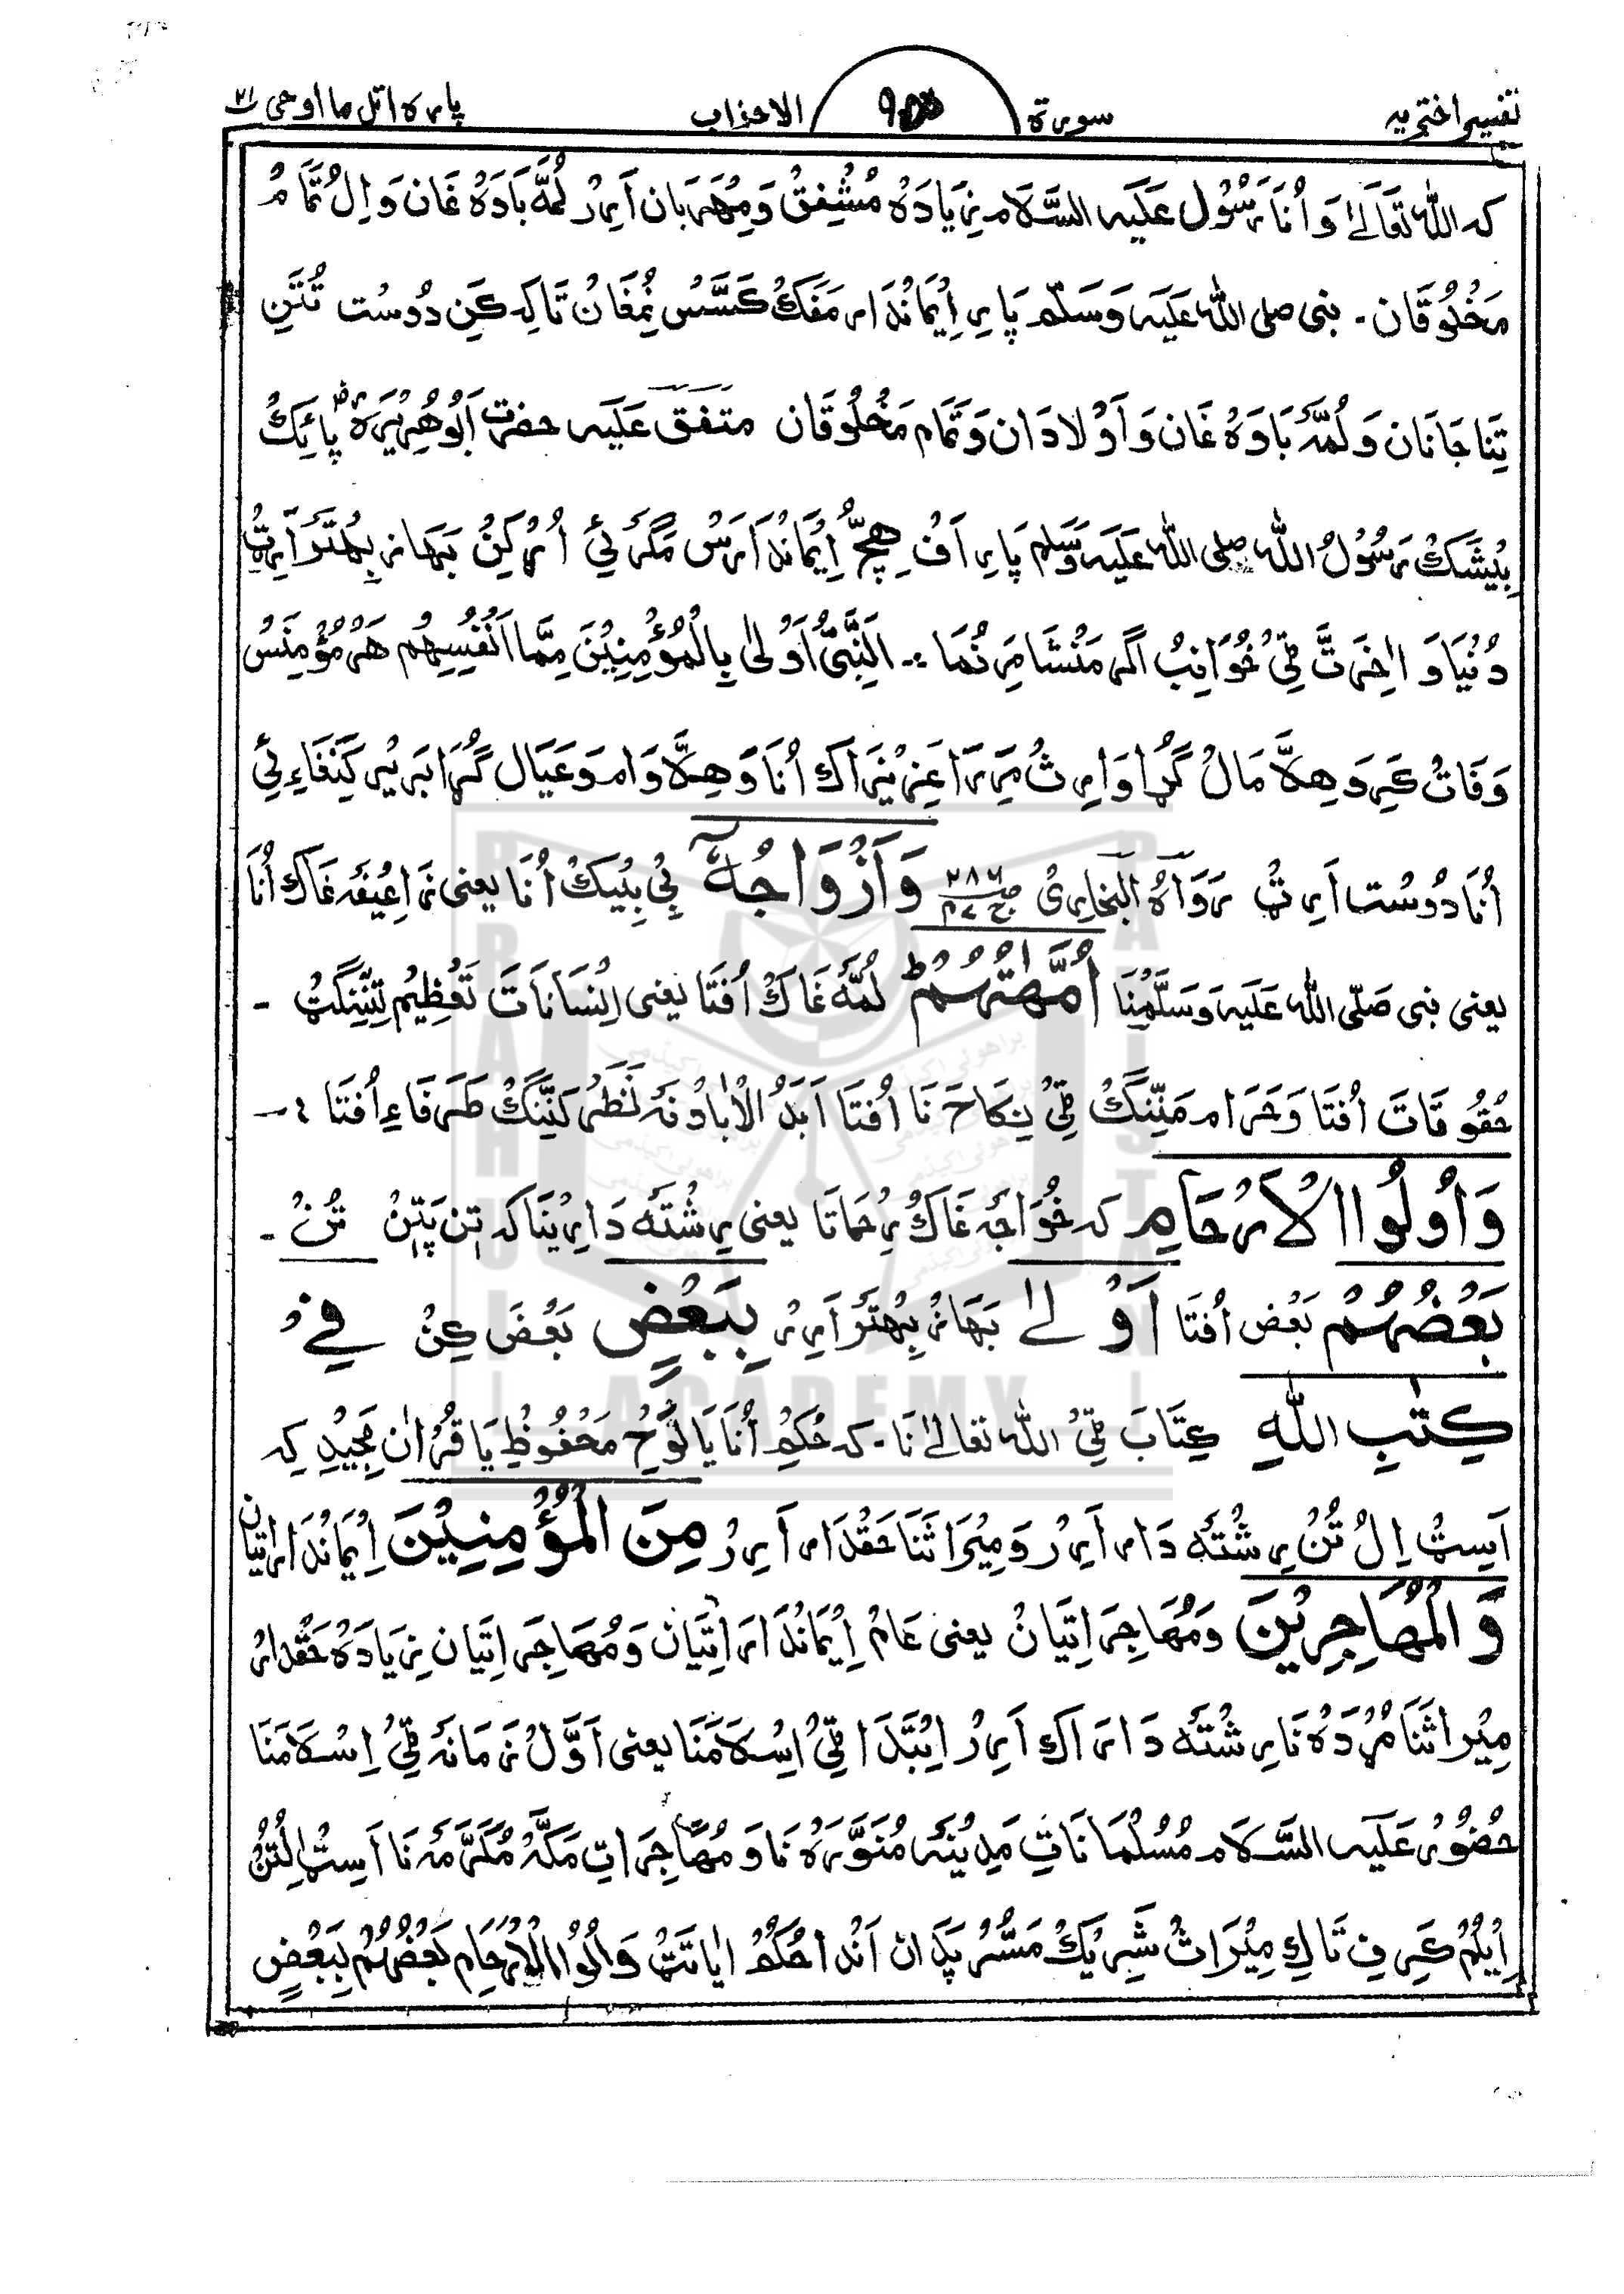 تفسیر اختریه سورة الاحزاب پاره اتل ما اوحی ۲۱
که الله تَعَالےٰ وَ اُنَا رَسُوْل عَلَیه السَّلَام زِیَادَهْ مُشْفِقْ وَمِهَربَان اَرِرْ لُمَّه بَاوَهْ غَان وَ اِلْ تَمَامْ
مَخْلُوْقَان ۔ نبی صلی الله عَلَیَه وَسَلّم پَارِ اِیْمَانْدَار مَفَکْ کَسَّسْ نُمْغَانْ تَاکِه کَنِ دُوْسْت تُتَنِ
تِنَا جَانَان وَ لُمَّه بَاوَهْ غَان وَ اَوْلَادَان وَ تَمَام مَخْلُوْقَان متفق عَلَیه حضرت اَبُوْهُرِیْرَهْ پَائِکْ
بِیْشَکْ رَسُوْلُ الله صلی الله عَلَیَه وَسَلَّم پَارِ اَفْ هِچّ اِیْمَانْدَارَسْ مَگَر ئِیْ اُرْکِنْ بَهَازْ بِهْتَر اَرِټْ
دُنْیَا وَ اٰخِرَتْ ټِیْ خُوَانِبْ اَگر مَنْشَا مَرِ نُمَا :۔ اَلنَّبِیُّ اَوْلیٰ بِالْمُؤْمِنِیْنَ مِمَّا اَنْفُسِهِمْ هَرْ مُؤْمِنَسْ
وَفَاتْ کَرِ وَ هِلَّا مَالْ گُڑا وَارِثْ مَرِرَ عَزِیْزَاکْ اُنَا وَ هِلَّا وَام وَ عَیَال گُڑا بَرِیْر کَنْغَاءِ ئِیْ
اُنَا دُوْسْت اَرِټْ رَوَاهُ الْبَخَارِیْ ج ۲ م وَاَزْوَاجُهٗٓ بِیْ بِیْکْ اُنَا یعنی زَاعِیْفَه غَاکْ اُنَا
یعنی نبی صَلّی الله عَلَیَه وَسَلَّمْنَا اُمَّهٰتُهُمْ ط لُمَّهْ غَاکْ اُفْتَا یعنی اِنْسَانَاتَ تَعْظِیْم تِنِّنْگټْ ۔
حُقُوْقَاتَ اُفْتَا وَ حَرَام مَنِّنْگْ ټِیْ نِکَاحَ نَا اُفْتَا اَبَدُ الْاٰبَادْ نَه نَظَر کَنِّنْگْ طَرَفَاءِ اُفْتَا ؛۔
وَاُولُوا الْاَرْحَامِ که خُوَاجَه غَاکْ رِحْمَاتَا یعنی رِشْتَه دَارِیْنَا که تِن پَتِن تُنْ ۔
بَعْضُهُمْ بَعْض اُفْتَا اَوْلےٰ بَهَازْ بِهْتَر اَرِرْ بِبَعْضٍ بَعْضَ کِنْ فِیْ
کِتٰبِ اللهِ کِتَابَ ټِیْ الله تعالیٰ نَا ۔ که حُکْم اُنَا یَا لَوْحِ مَحْفُوْظ یَا قُرْاٰن مَجِیْد که
اَسِټْ اِلْ تُنْ رِشْتَه دَار اَرِرْ وَ مِیْرَاثَنَا حَقْدَار اَرِرْ مِنَ الْمُؤْمِنِیْنَ اِیْمَانْدَارَاتِیَان
وَالْمُهَاجِرِیْنَ وَمُهَاجِرَاتِیَانْ یعنی عَامْ اِیْمَانْدَارَاتِیَان وَ مُهَاجِرَاتِیَان زِیَادَهْ حَقْدَارْ
مِیْرَاثَنَا مُرْدَهْ نَا رِشْتَه دَارَاکْ اَرِرْ اِبْتَدَا ټِیْ اِسْلَامَنَا یعنی اَوَّلْ زَمَانَه ټِیْ اِسْلَامَنَا
حُضُوْرْ عَلَیه السَّلَام مُسُلْمَانَاتِ مَدِیْنَه مُنَوَّرَهْ نَا وَ مُهَاجِرَاتِ مَکَّهْ مُکَرَّمَه نَا اَسِټْ اِلْتُنْ
اِیْلُمْ کَرِفِ تَاکِ مِیْرَاثْ شَرِیْکْ مَسُّرْ پَدَانْ اَنْدَا حُکْم اٰیَاتَټْ وَاُولُوا الْاَرْحَام بَعْضُهُمْ بِبَعْضٍ